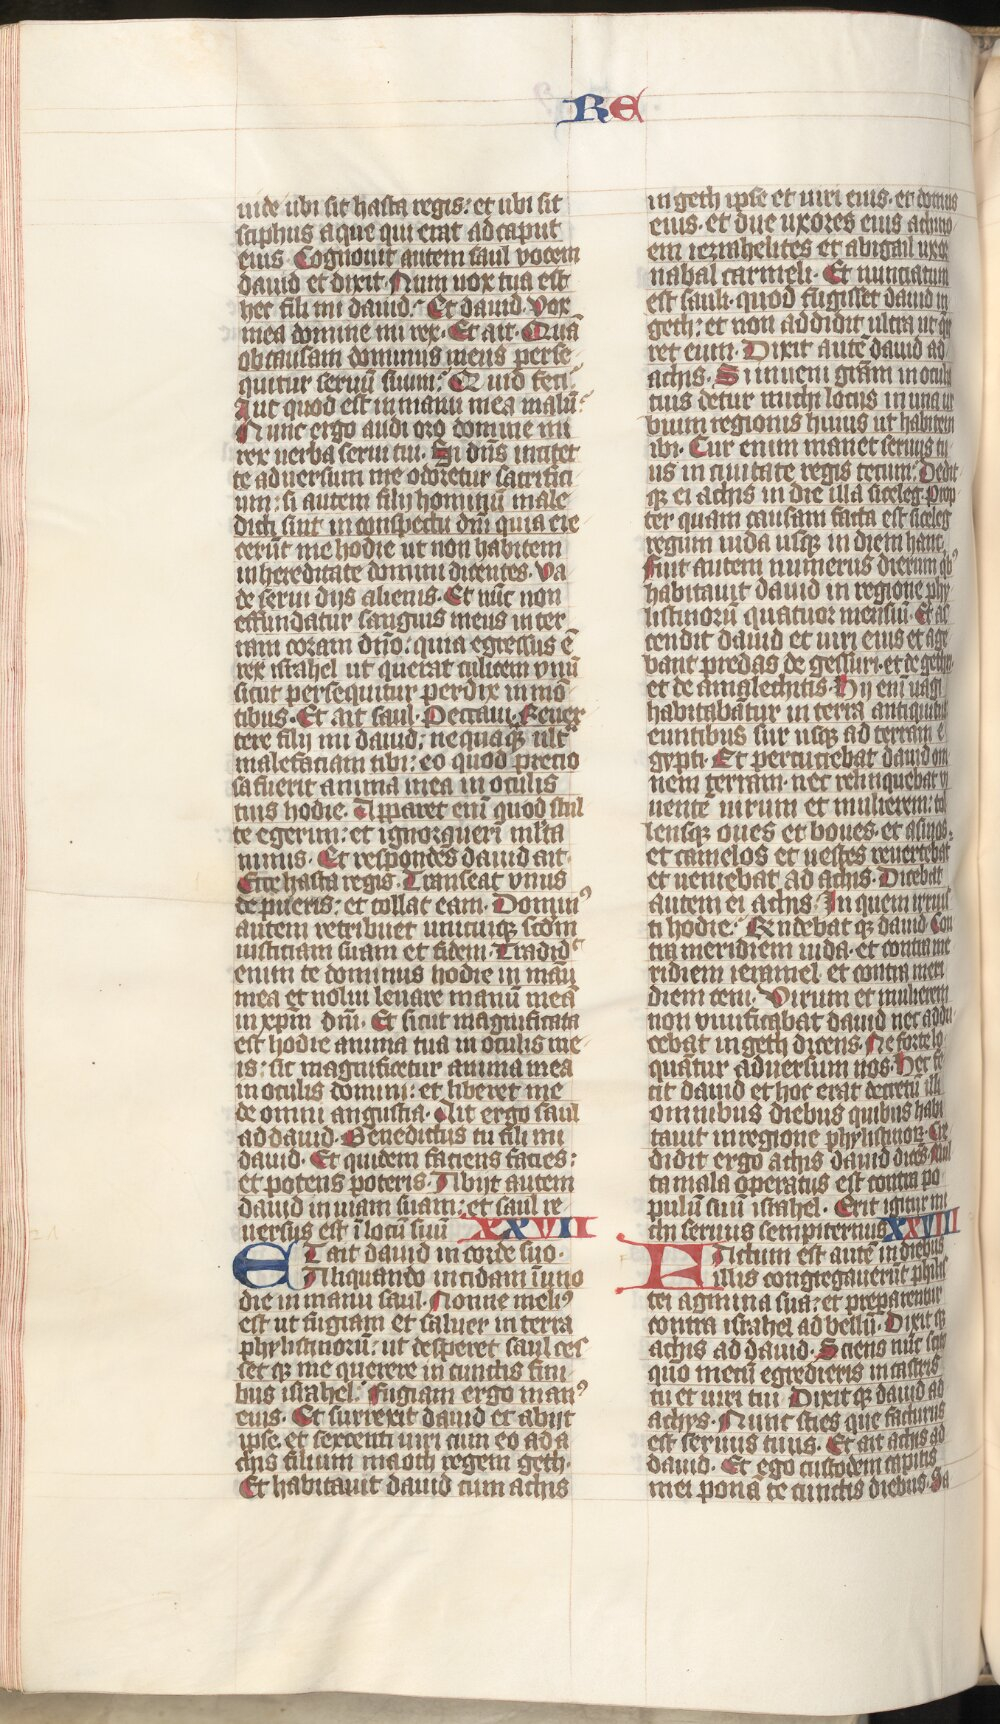 RE
uide ubi sit hasta regis: et ubi sit
sciphus aque qui erat ad caput
eius. Cognouit autem saul vocem
dauid et dixit. Num uox tua est
hec fili mi dauid? Et dauid. Vox
mea domine mi rex. Et ait. Quā
ob causam dominus meus perse
quitur seruū suum? Quid feci?
Aut quod est in manu mea malū?
Nunc ergo audi oro domine mi
rex uerba serui tui. Si dn̄s incitet
te aduersum me odoretur sacrifici
um: si autem filij hominū male
dicti sint in conspectu dn̄i quia eie
cerūt me hodie ut non habitem
in hereditate domini dicentes. Va
de serui dijs alienis. Et nūc non
effundatur sanguis meus in ter
ram coram dn̄o: quia egressus ē
rex israhel ut querat culicem vnū
sicut persequitur perdix in mō
tibus. Et ait saul. Peccaui. Reuer
tere filij mi dauid: nequaq̄ ult̄
malefaciam tibi: eo quod precio
sa fuerit anima mea in oculis
tuis hodie. Apparet eni̅ quod stul
te egerim: et ignorauerī multa
nimis. Et respondēs dauid ait.
Ecce hasta regis. Transeat vnus
de pueris: et tollat eam. Dominꝰ
autem retribuet unicuiqꝫ scd̅m
iusticiam suam et fidem. Tradid᷑
enim te dominus hodie in manū
mea et nolui leuare manū meā
in xp̄m dn̄i. Et sicut magnificata
est hodie anima tua in oculis me
is: sic magnificetur anima mea
in oculis domini: et liberet me
de omni angustia. Ait ergo saul
ad dauid. Benedictus tu fili mi
dauid. Et quidem faciens facies:
et potens poteris. Abijt autem
dauid in uiam suam: et saul re
uersus est ī locū suū XXVII
ET ait dauid in corde suo.
Aliquando incidam ī uno
die in manu saul. Nonne meliꝰ
est ut fugiam et saluer in terra
phylistinorū: ut desperet saul ces
setqꝫ me querere in cunctis fini
bus israhel? Fugiam ergo manꝰ
eius. Et surrexit dauid et abijt
ipse. et sexcenti uiri cum eo ad a
chis filium maoch regem geth.
Et habitauit dauid cum achis
in geth ipse et uiri eius. et domus
eius. et due uxores eius achino
em iezrahelites et abigail uxor
nabal carmeli. Et nunciatum
est sauli quod fugisset dauid in
geth: et non addidit ultra ut q̄
ret eum. Dixit autē dauid ad
achis. Si inueni grām in oculis
tuis detur michi locus in una ur
bium regionis huius ut habitem
ibi. Cur enim manet seruus tu
us in ciuitate regis tecum? Dedit
qꝫ ei achis in die illa siceleg. Prop
ter quam causam facta est siceleg
regum iuda usqꝫ in diem hanc.
Fuit autem numerus dierum qbꝰ
habitauit dauid in regione phy
listinorū quatuor mensiū. Et as
cendit dauid et uiri eius et age
bant predas de gessuri. et de gethri.
et de amalechitis. Hij eni̅ uagi
habitabātur in terra antiquitus
euntibus sur usqꝫ ad terram e
gypti. Et percuciebat dauid om
nem terram. nec relinquebat vi
uentē uirum et mulierem: tol
lensqꝫ oues et boues. et asinos.
et camelos et uestes reuertebat᷑
et ueniebat ad achis. Dicebat
autem ei achis. In quem irruis
ti hodie? Rn̄debatqꝫ dauid. Con
tra meridiem iuda. et contra me
ridiem ieramel. et contra meri
diem ceni. Virum et mulierem
non viuificabat dauid nec addu
cebat in geth dicens. Ne forte lo
quātur aduersum nos. Hec fe
cit dauid et hoc erat decretū illi
omnibus diebus quibus habi
tauit in regione phylistinor̄. Cre
didit ergo achis dauid dicēs. Mul
ta mala operatus est contra po
pulū suū israhel. Erit igitur mi
chi seruus sempiternus XXVIII
FActum est autē in diebus
illis congregauerūt philis
tei agmina sua: et preparentur
contra israhel ad bellū. Dixitqꝫ
achis ad dauid. Sciens nūc scito
quō mecū egredieris in castris
tu et uiri tui. Dixitqꝫ dauid ad
achys. Nunc scies que facturus
est seruus tuus. Et ait achis ad
dauid. Et ego custodem capitis
mei ponā te cunctis diebus. Sa